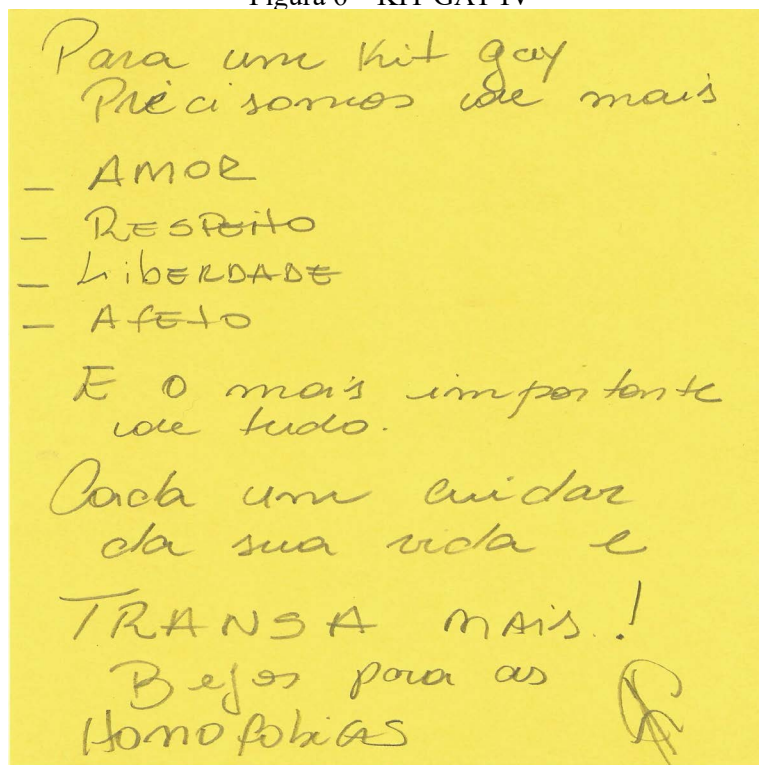 Figura 6 – KIT GAY IV
Para um Kit gay
Précisamos de mais
– AMOR
– RESPEITO
– LibERDADE
– AfETO
E o mais importante
de tudo.
Cada um cuidar
da sua vida e
TRANSA MAis!
Bejos para as
Homofobicas